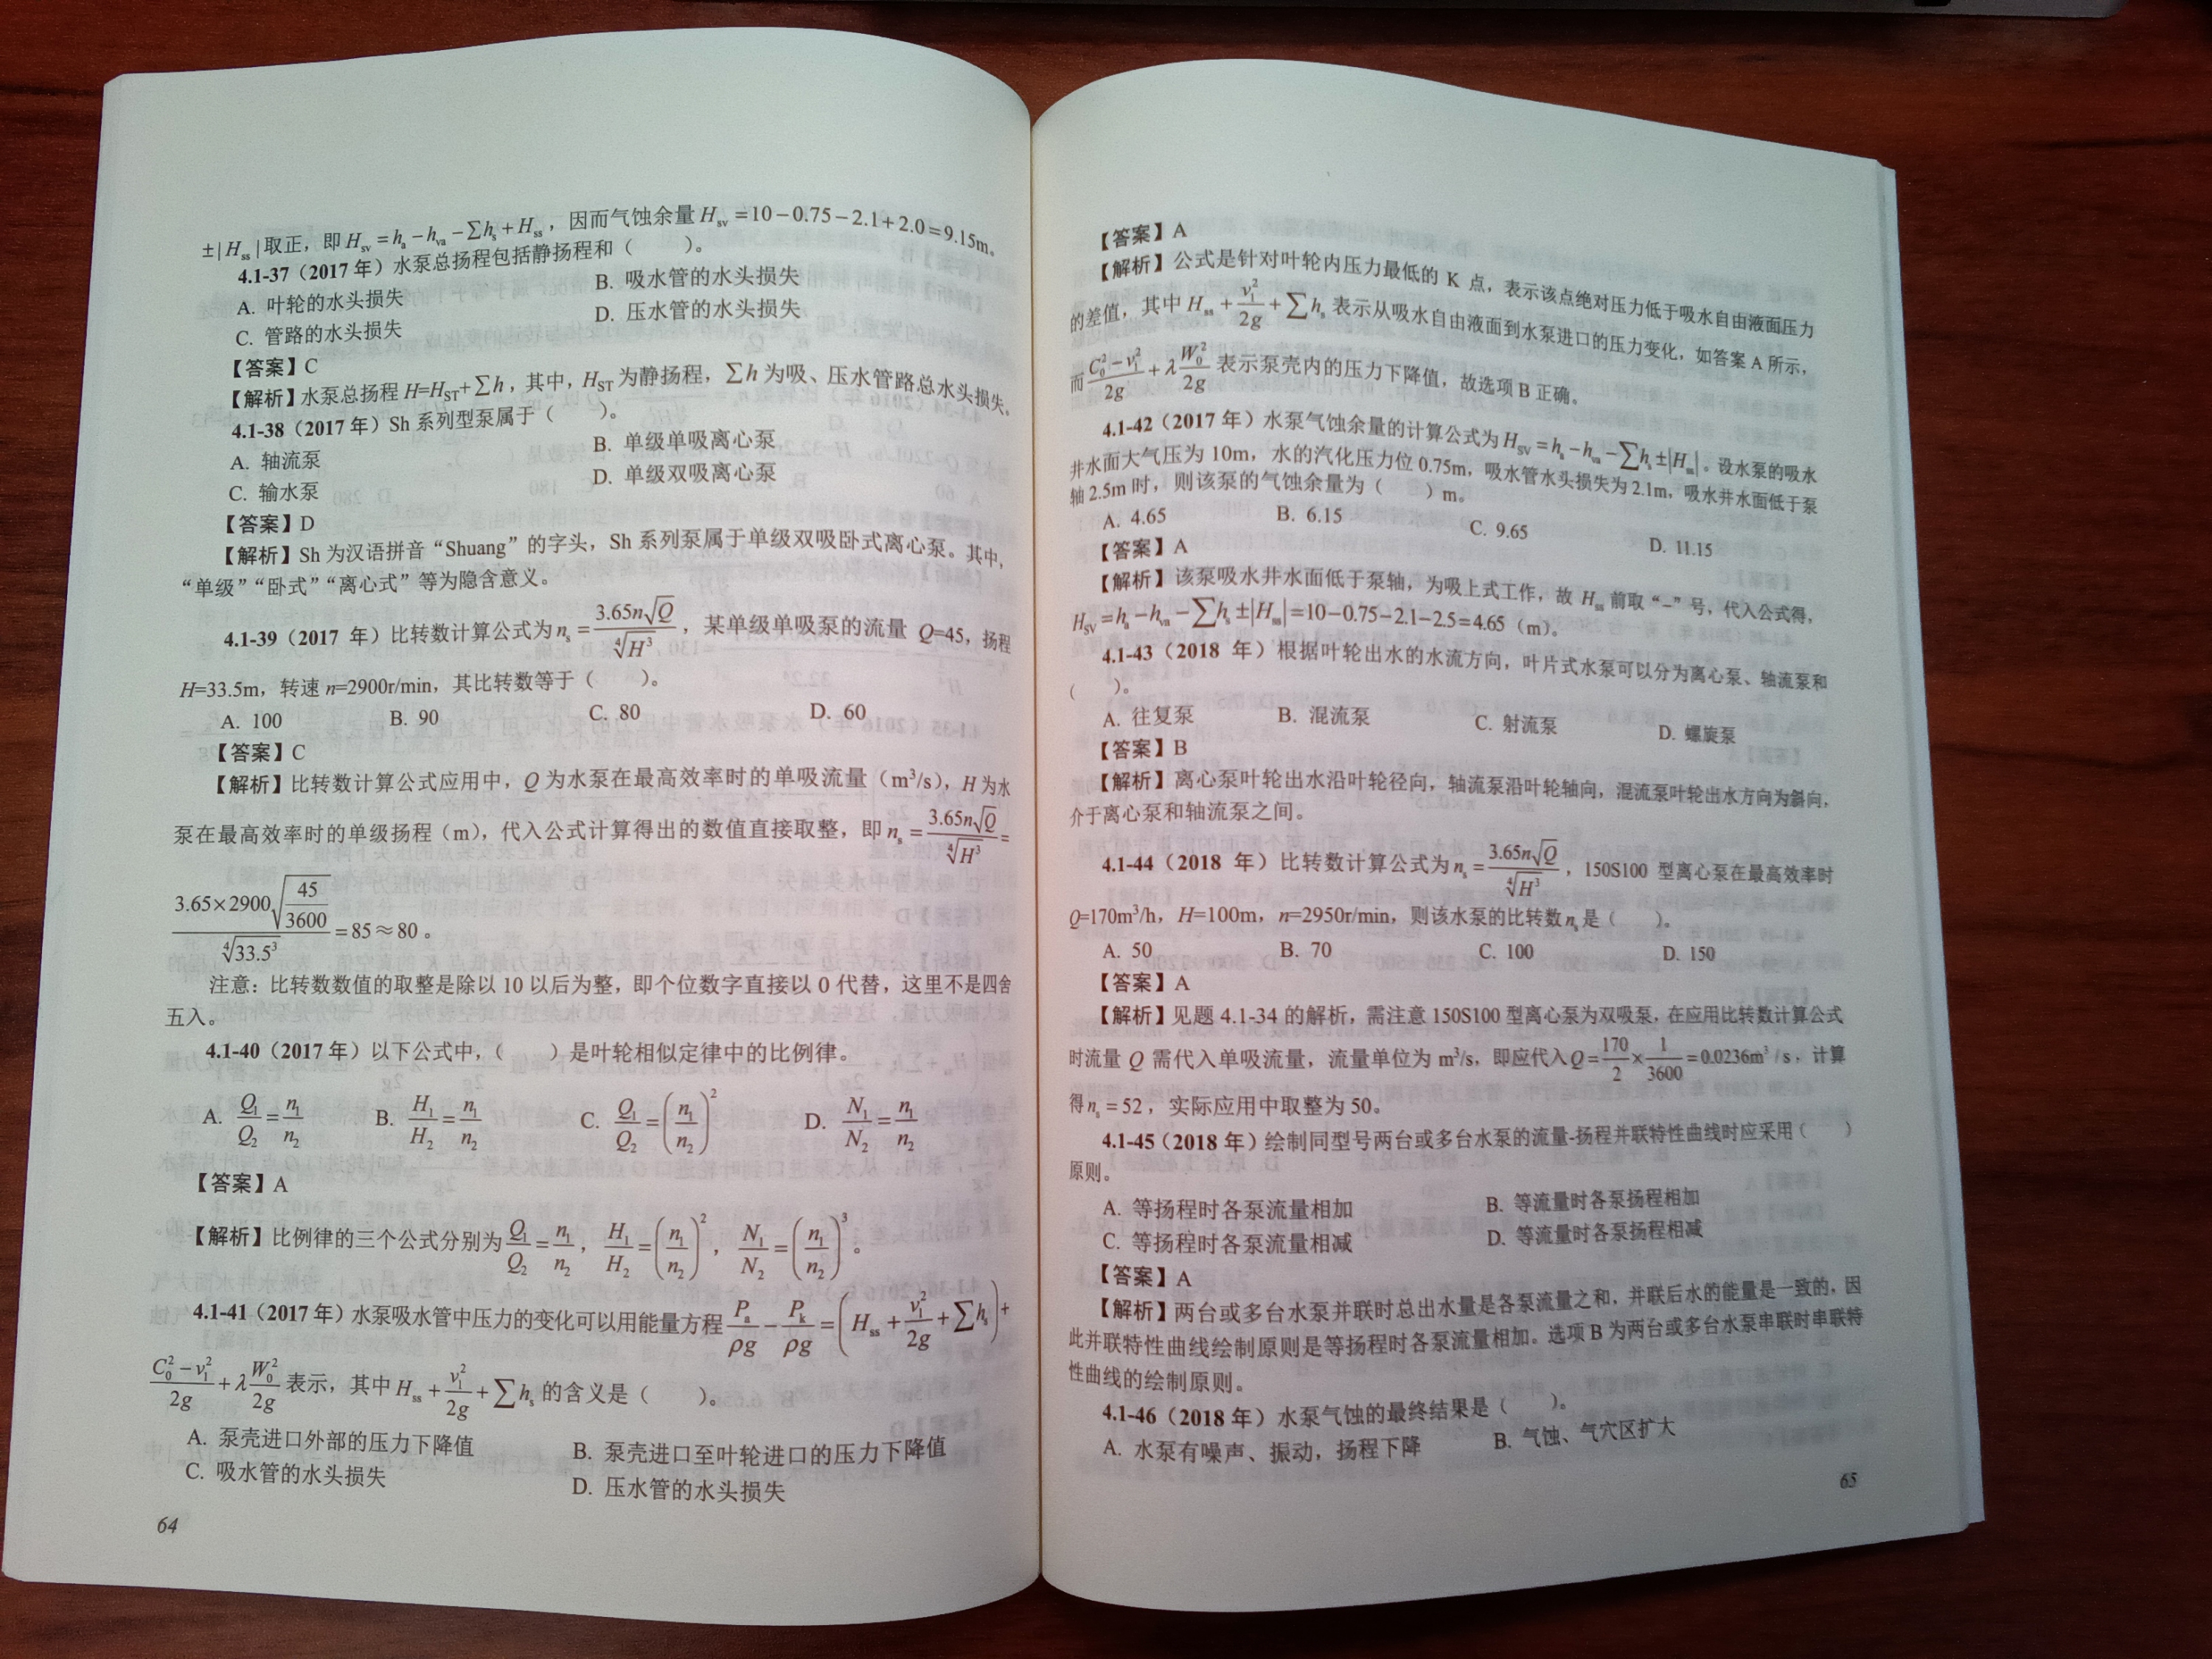 ±|H_ss|取正，即 H_sv = h_a − h_va − ∑h_s + H_ss，因而气蚀余量 H_sv = 10 − 0.75 − 2.1 + 2.0 = 9.15m。
4.1-37（2017 年）水泵总扬程包括静扬程和（　　）。
A. 叶轮的水头损失　B. 吸水管的水头损失
C. 管路的水头损失　D. 压水管的水头损失
【答案】C
【解析】水泵总扬程 H=H_ST+∑h，其中，H_ST 为静扬程，∑h 为吸、压水管路总水头损失。
4.1-38（2017 年）Sh 系列型泵属于（　　）。
A. 轴流泵　B. 单级单吸离心泵
C. 输水泵　D. 单级双吸离心泵
【答案】D
【解析】Sh 为汉语拼音“Shuang”的字头，Sh 系列泵属于单级双吸卧式离心泵。其中，
“单级”“卧式”“离心式”等为隐含意义。
4.1-39（2017 年）比转数计算公式为 n_s = 3.65n√Q / ∜H³，某单级单吸泵的流量 Q=45，扬程
H=33.5m，转速 n=2900r/min，其比转数等于（　　）。
A. 100　B. 90　C. 80　D. 60
【答案】C
【解析】比转数计算公式应用中，Q 为水泵在最高效率时的单吸流量（m³/s），H 为水
泵在最高效率时的单级扬程（m），代入公式计算得出的数值直接取整，即 n_s = 3.65n√Q / ∜H³ =
3.65×2900√(45/3600) / ∜33.5³ = 85 ≈ 80。
注意：比转数数值的取整是除以 10 以后为整，即个位数字直接以 0 代替，这里不是四舍
五入。
4.1-40（2017 年）以下公式中，（　　）是叶轮相似定律中的比例律。
A. Q₁/Q₂ = n₁/n₂　B. H₁/H₂ = n₁/n₂　C. Q₁/Q₂ = (n₁/n₂)²　D. N₁/N₂ = n₁/n₂
【答案】A
【解析】比例律的三个公式分别为 Q₁/Q₂ = n₁/n₂，H₁/H₂ = (n₁/n₂)²，N₁/N₂ = (n₁/n₂)³。
4.1-41（2017 年）水泵吸水管中压力的变化可以用能量方程 P_a/ρg − P_k/ρg = (H_ss + v₁²/2g + ∑h_s) +
(C₀² − v₁²)/2g + λ W₀²/2g 表示，其中 H_ss + v₁²/2g + ∑h_s 的含义是（　　）。
A. 泵壳进口外部的压力下降值　B. 泵壳进口至叶轮进口的压力下降值
C. 吸水管的水头损失　D. 压水管的水头损失
64
【答案】A
【解析】公式是针对叶轮内压力最低的 K 点，表示该点绝对压力低于吸水自由液面压力
的差值，其中 H_ss + v₁²/2g + ∑h_s 表示从吸水自由液面到水泵进口的压力变化，如答案 A 所示，
而 (C₀² − v₁²)/2g + λ W₀²/2g 表示泵壳内的压力下降值，故选项 B 正确。
4.1-42（2017 年）水泵气蚀余量的计算公式为 H_SV = h_a − h_va − ∑h_s ± |H_ss|。设水泵的吸水
井水面大气压为 10m，水的汽化压力位 0.75m，吸水管水头损失为 2.1m，吸水井水面低于泵
轴 2.5m 时，则该泵的气蚀余量为（　　）m。
A. 4.65　B. 6.15　C. 9.65　D. 11.15
【答案】A
【解析】该泵吸水井水面低于泵轴，为吸上式工作，故 H_ss 前取“−”号，代入公式得，
H_SV = h_a − h_va − ∑h_s ± |H_ss| = 10−0.75−2.1−2.5 = 4.65（m）。
4.1-43（2018 年）根据叶轮出水的水流方向，叶片式水泵可以分为离心泵、轴流泵和
（　　）。
A. 往复泵　B. 混流泵　C. 射流泵　D. 螺旋泵
【答案】B
【解析】离心泵叶轮出水沿叶轮径向，轴流泵沿叶轮轴向，混流泵叶轮出水方向为斜向，
介于离心泵和轴流泵之间。
4.1-44（2018 年）比转数计算公式为 n_s = 3.65n√Q / ∜H³，150S100 型离心泵在最高效率时
Q=170m³/h，H=100m，n=2950r/min，则该水泵的比转数 n_s 是（　　）。
A. 50　B. 70　C. 100　D. 150
【答案】A
【解析】见题 4.1-34 的解析，需注意 150S100 型离心泵为双吸泵，在应用比转数计算公式
时流量 Q 需代入单吸流量，流量单位为 m³/s，即应代入 Q = 170/2 × 1/3600 = 0.0236m³/s，计算
得 n_s = 52，实际应用中取整为 50。
4.1-45（2018 年）绘制同型号两台或多台水泵的流量-扬程并联特性曲线时应采用（　　）
原则。
A. 等扬程时各泵流量相加　B. 等流量时各泵扬程相加
C. 等扬程时各泵流量相减　D. 等流量时各泵扬程相减
【答案】A
【解析】两台或多台水泵并联时总出水量是各泵流量之和，并联后水的能量是一致的，因
此并联特性曲线绘制原则是等扬程时各泵流量相加。选项 B 为两台或多台水泵串联时串联特
性曲线的绘制原则。
4.1-46（2018 年）水泵气蚀的最终结果是（　　）。
A. 水泵有噪声、振动，扬程下降　B. 气蚀、气穴区扩大
65